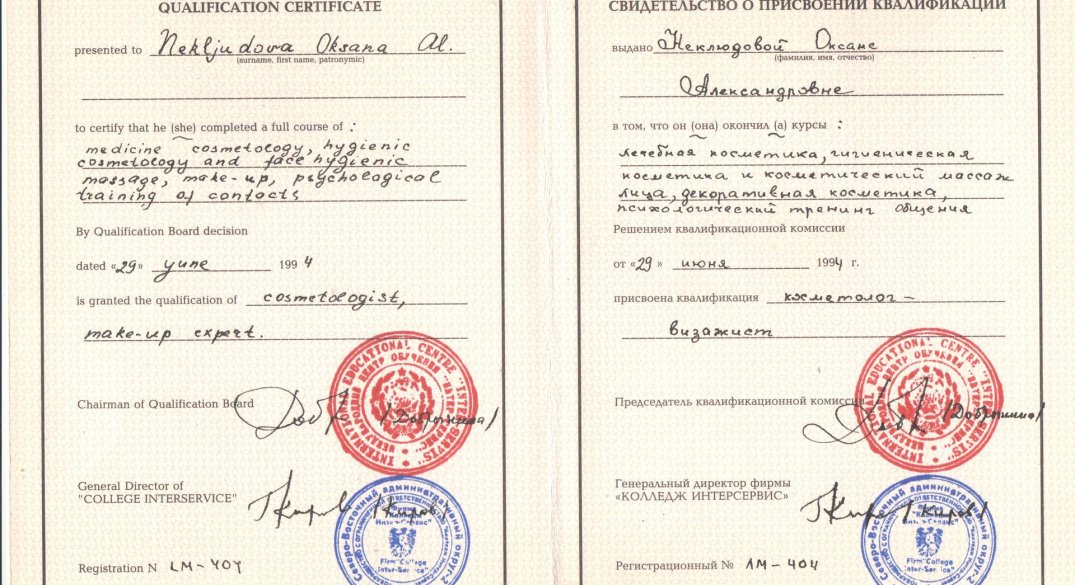 QUALIFICATION CERTIFICATE
presented to Nekljudova Oksana Al.
(surname, first name, patronymic)
to certify that he (she) completed a full course of :
medicine cosmetology, hygienic
cosmetology and face hygienic
massage, make-up, psychological
training of contacts
By Qualification Board decision
dated «29» yune 1994
is granted the qualification of cosmetologist,
make-up expert.
Chairman of Qualification Board
INTERNATIONAL EDUCATIONAL CENTRE "INTERSERVIS"
General Director of
"COLLEGE INTERSERVICE"
Северо-Восточный административный округ
Firm "College
Inter-Service"
Registration N LM-404
СВИДЕТЕЛЬСТВО О ПРИСВОЕНИИ КВАЛИФИКАЦИИ
выдано Неклюдовой Оксане
(фамилия, имя, отчество)
Александровне
в том, что он (она) окончил (а) курсы :
лечебная косметика, гигиеническая
косметика и косметический массаж
лица, декоративная косметика,
психологический тренинг общения
Решением квалификационной комиссии
от «29» июня 1994 г.
присвоена квалификация косметолог-
визажист
Председатель квалификационной комиссии
INTERNATIONAL EDUCATIONAL CENTRE "INTERSERVIS"
Генеральный директор фирмы
«КОЛЛЕДЖ ИНТЕРСЕРВИС»
Северо-Восточный административный округ
Firm "College
Inter-Service"
Регистрационный № ЛМ-404